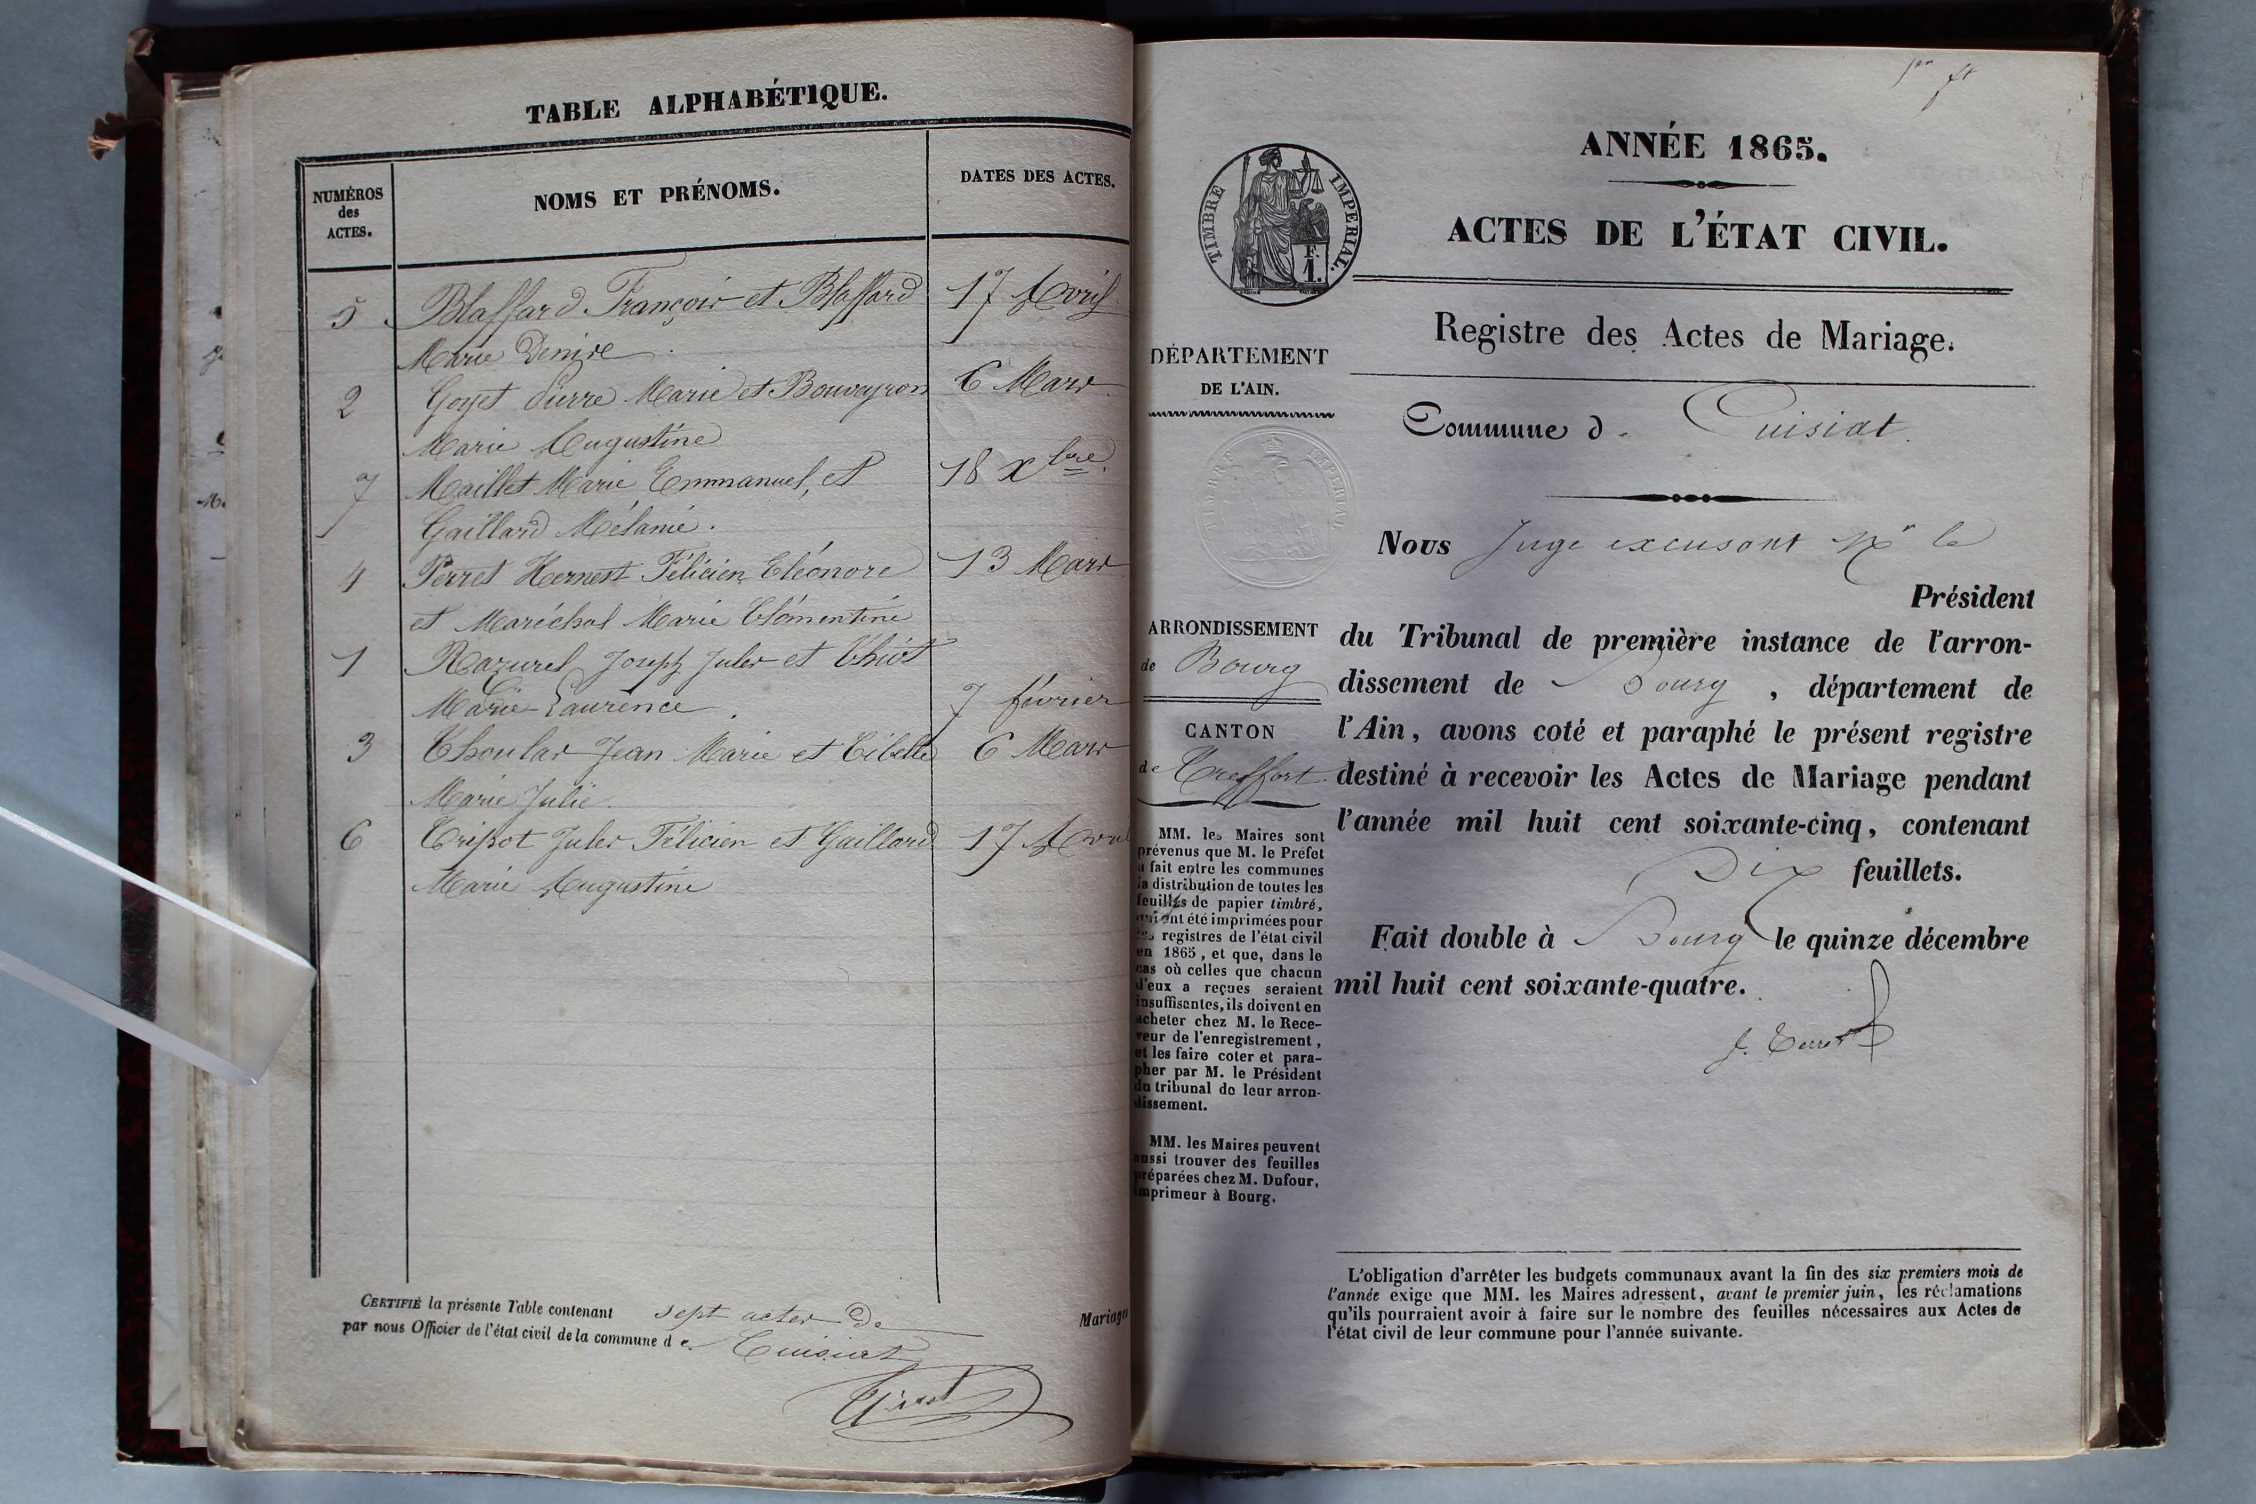 TABLE ALPHABÉTIQUE.
NUMÉROS des ACTES. NOMS ET PRÉNOMS. DATES DES ACTES.
5 Blaffard François et Blaffard 17 Avril
Marie Denise
2 Goyet Pierre Marie et Bouveyron 6 Mars
Marie Augustine
7 Maillet Marie Emmanuel, et 18 Xbre
Gaillard Mélanie.
4 Perret Hernest Félicien Eléonore 13 Mars
et Maréchal Marie Clémentine
1 Razurel Joseph Jules et Chiot
Marie Laurence 7 février
3 Choular Jean Marie et Cibelle 6 Mars
Marie Julie
6 Tripot Jules Félicien et Gaillard 17 Avril
Marie Augustine
CERTIFIÉ la présente Table contenant sept actes de Mariages
par nous Officier de l'état civil de la commune de Cuisiat
1er ft
ANNÉE 1865.
TIMBRE IMPERIAL.
F. 1.
ACTES DE L'ÉTAT CIVIL.
Registre des Actes de Mariage.
DÉPARTEMENT
DE L'AIN.
Commune d Cuisiat
Nous Juge excusant Mr le
Président
ARRONDISSEMENT
de Bourg
CANTON
de Treffort
du Tribunal de première instance de l'arron-
dissement de Bourg, département de
l'Ain, avons coté et paraphé le présent registre
destiné à recevoir les Actes de Mariage pendant
l'année mil huit cent soixante-cinq, contenant
Dix feuillets.
Fait double à Bourg le quinze décembre
mil huit cent soixante-quatre.
MM. les Maires sont
prévenus que M. le Préfet
a fait entre les communes
la distribution de toutes les
feuilles de papier timbré,
qui ont été imprimées pour
les registres de l'état civil
en 1865, et que, dans le
cas où celles que chacun
d'eux a reçues seraient
insuffisantes, ils doivent en
acheter chez M. le Rece-
veur de l'enregistrement,
et les faire coter et para-
pher par M. le Président
du tribunal de leur arron-
dissement.
MM. les Maires peuvent
aussi trouver des feuilles
préparées chez M. Dufour,
imprimeur à Bourg.
L'obligation d'arrêter les budgets communaux avant la fin des six premiers mois de
l'année exige que MM. les Maires adressent, avant le premier juin, les réclamations
qu'ils pourraient avoir à faire sur le nombre des feuilles nécessaires aux Actes de
l'état civil de leur commune pour l'année suivante.